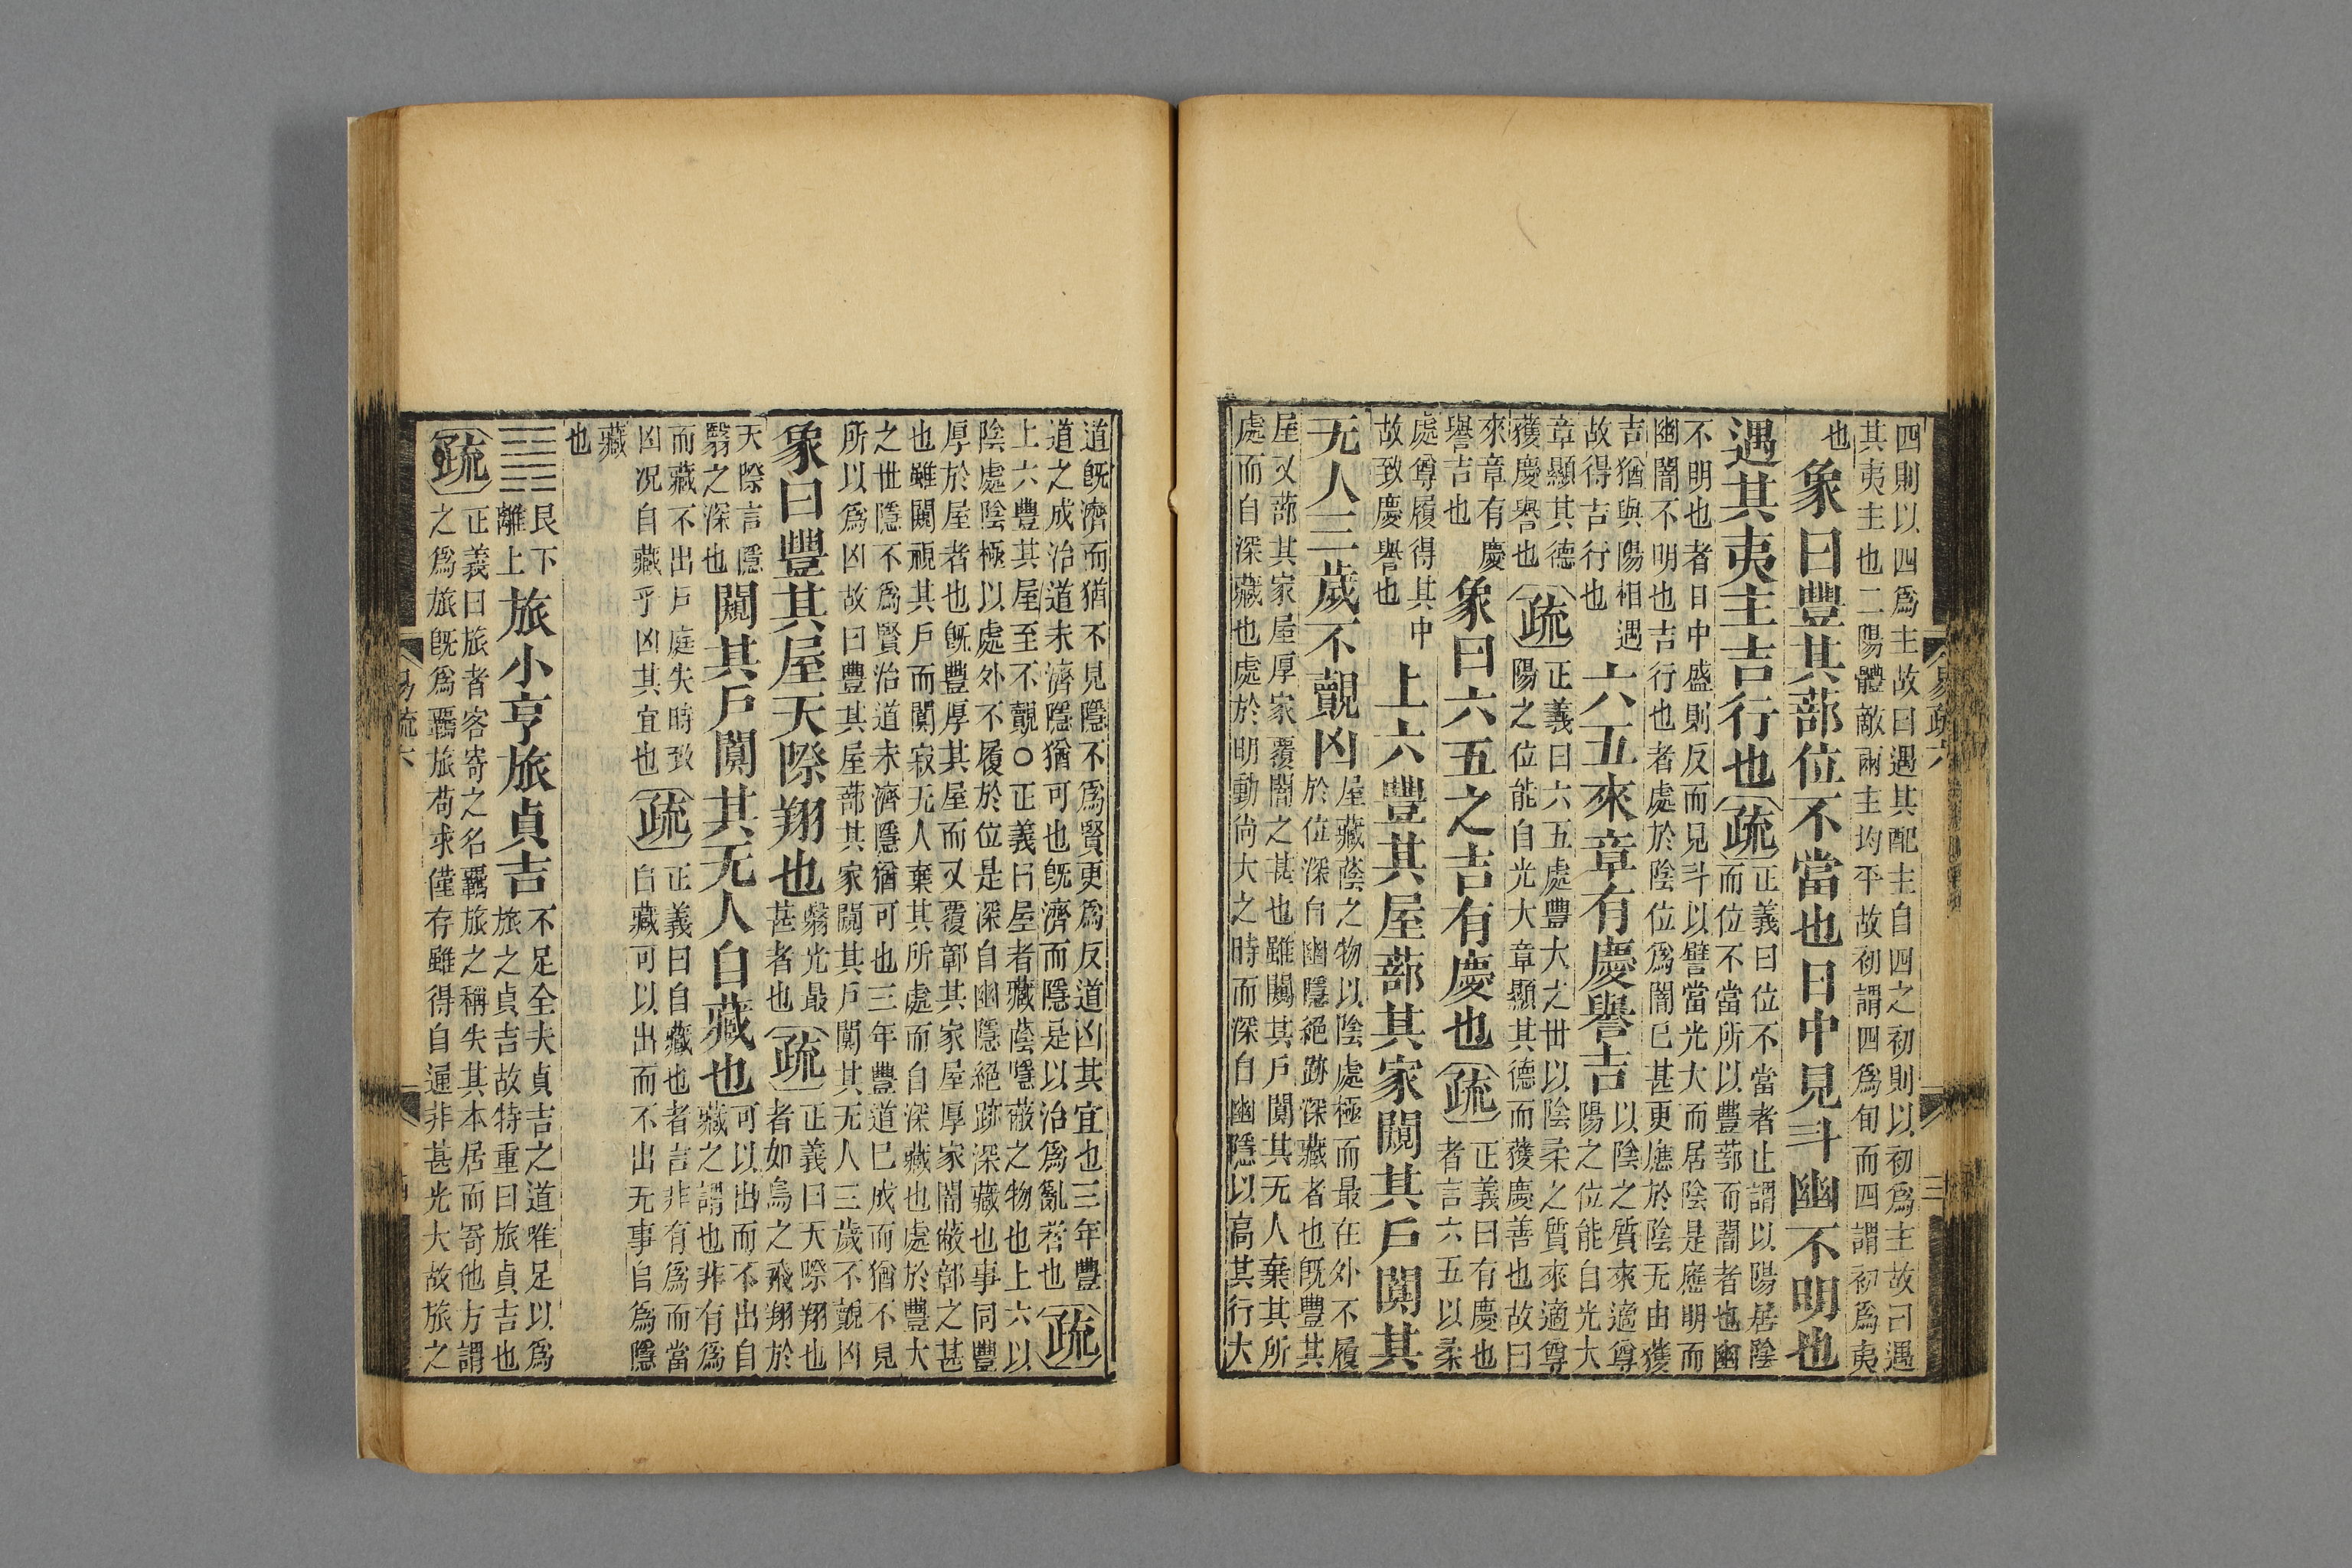 四則以四爲主故曰遇其配主自四之初則以初爲主故曰遇
其夷主也二陽體敵兩主均平故初謂四爲旬而四謂初爲夷
也
象曰豐其蔀位不當也日中見斗幽不明也
遇其夷主吉行也
疏
正義曰位不當者止謂以陽居陰
而位不當所以豐蔀而闇者也幽
不明也者日中盛則反而見斗以譬當光大而居陰是應明而
幽闇不明也吉行也者處於陰位爲闇已甚更應於陰无由獲
吉猶與陽相遇
故得吉行也
六五來章有慶譽吉
以陰之質來適尊
陽之位能自光大
章顯其德
獲慶譽也
疏
正義曰六五處豐大之世以陰柔之質來適尊
陽之位能自光大章顯其德而獲慶善也故曰
來章有慶
譽吉也
象曰六五之吉有慶也
疏
正義曰有慶也
者言六五以柔
處尊履得其中
故致慶譽也
上六豐其屋蔀其家闚其戶闃其
无人三歲不覿凶
屋藏蔭之物以陰處極而最在外不履
於位深自幽隱絕跡深藏者也旣豐其
屋又蔀其家屋厚家覆闇之甚也雖闚其戶闃其无人棄其所
處而自深藏也處於明動尙大之時而深自幽隱以高其行大
道旣濟而猶不見隱不爲賢更爲反道凶其宜也三年豐
道之成治道未濟隱猶可也旣濟而隱是以治爲亂者也
疏
上六豐其屋至不覿○正義曰屋者藏蔭隱蔽之物也上六以
陰處陰極以處外不履於位是深自幽隱絕跡深藏也事同豐
厚於屋者也旣豐厚其屋而又覆鄣其家屋厚家闇蔽鄣之甚
也雖闚視其戶而闃寂无人棄其所處而自深藏也處於豐大
之世隱不爲賢治道未濟隱猶可也三年豐道已成而猶不見
所以爲凶故曰豐其屋蔀其家闚其戶闃其无人三歲不覿凶
象曰豐其屋天際翔也
翳光最
甚者也
疏
正義曰天際翔也
者如鳥之飛翔於
天際言隱
翳之深也
闚其戶闃其无人自藏也
可以出而不出自
藏之謂也非有爲
而藏不出戶庭失時致
凶况自藏乎凶其宜也
疏
正義曰自藏也者言非有爲而當
自藏可以出而不出无事自爲隱
藏
也
艮下
離上
旅小亨旅貞吉
不足全夫貞吉之道唯足以爲
旅之貞吉故特重曰旅貞吉也
疏
正義曰旅者客寄之名羈旅之稱失其本居而寄他方謂
之爲旅旣爲羈旅苟求僅存雖得自通非甚光大故旅之
易疏六
易疏六